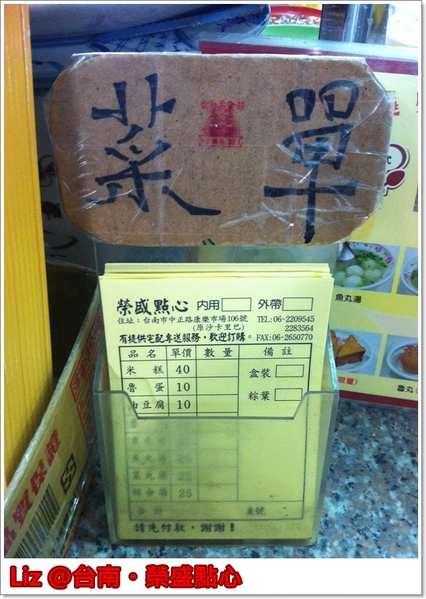 菜單
榮盛點心 內用 外帶
住址：台南市中正路康樂市場106號 TEL:06-2209545
(原沙卡里巴) 2283564
有提供宅配專送服務，歡迎訂購。FAX:06-2650770
品名 單價 數量 備註
米糕 40 盒裝
魯蛋 10
油豆腐 10 粽葉
魚丸湯 25
綜合湯 25
合計 桌號
請先付款，謝謝！
魚丸湯
魯丸
Liz @台南・榮盛點心